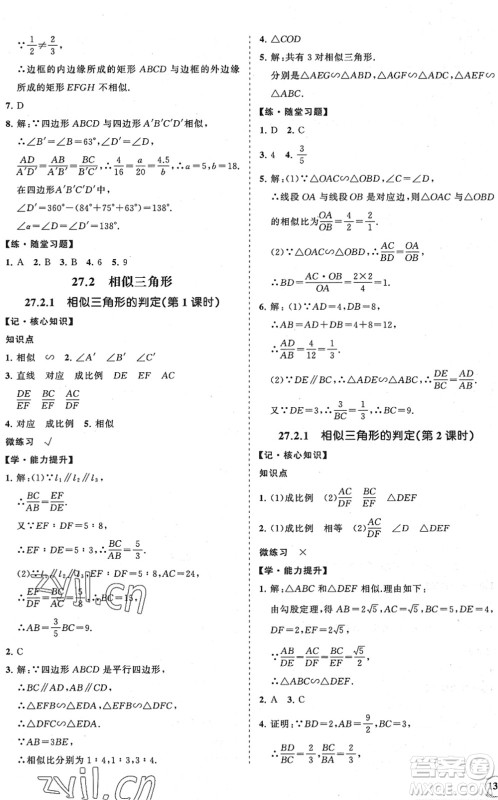 ∵1/2≠2/3,
∴边框的内边缘所成的矩形 ABCD 与外边缘
所成的矩形 EFGH 不相似.
7. D
8. 解:∵四边形 ABCD∽四边形 A′B′C′D′,
∴∠B′=∠B=63°,∠D′=∠D,
AD/A′D′=AB/A′B′=BC/B′C′,∴4/16=a/20=4.5/b,∴a=5,b=18.
在四边形 A′B′C′D′中,
∠D′=360°-(84°+75°+63°)=138°.
∴∠D=∠D′=138°.
【练·随堂习题】
1. A 2. B 3. B 4. 6 5. 9
27.2 相似三角形
27.2.1 相似三角形的判定(第 1 课时)
【记·核心知识】
知识点
1. 相似 ∽ 2. ∠A′ ∠B′ ∠C′
3. 直线 对应 成比例 DE EF AC
DE/EF DE/DF EF/DF
4. 对应 成比例 5. 相似
微练习 √
【学·能力提升】
1. 解:(1)∵l₁∥l₂∥l₃,∴BC/BA=EF/DE.
∴BC/AC=EF/DF.
又∵EF∶DF=5∶8,
∴EF∶DE=5∶3.∴BC/AB=5/3.
(2)∵l₁∥l₂∥l₃,EF∶DF=5∶8,AC=24,
∴EF/DF=BC/AC=5/8.∴BC=15,
∴AB=3/5 BC=9.
2. C
3. 解:∵四边形 ABCD 是平行四边形,
∴BC∥AD,AB∥CD.
∴△EFB∽△EDA,△DFC∽△EDA.
∴△EFB∽△DFC.
∴相似比分别为 1∶4,3∶4,1∶3.
4. △COD
5. 解:共有 3 对相似三角形.
分别是△AEG∽△AFH,△AEG∽△ABC,△AFH∽
△ABC.
【练·随堂习题】
1. D 2. C
3. 4 4. 3/5
5. 解:(1)∵△OAC∽△OBD,∠C=∠D,
∴线段 OA 与线段 OB 是对应边,则△OAC 与△OBD
的相似比为OA/OB=4/2=2/1.
(2)∵△OAC∽△OBD,∴AC/BD=OA/OB.
∴BD=AC·OB/OA=2×2/4=1.
6. 解:(1)∵AD=4,DB=8,
∴AB=AD+DB=4+8=12.
∴AD/AB=4/12=1/3.
(2)∵DE∥BC,∴△ADE∽△ABC.
∴DE/BC=AD/AB.
∵DE=3,∴3/BC=1/3.∴BC=9.
27.2.1 相似三角形的判定(第 2 课时)
【记·核心知识】
知识点
1. (1)成比例 AC/DF △DEF
2. (1)成比例 相等 AC/DF ∠D △DEF
微练习 ×
【学·能力提升】
1. 解:△ABC 和△DEF 相似.理由如下:
由勾股定理,得 AB=2√5,AC=√5,BC=5,
DE=4,DF=2,EF=2√5,
∵AB/DE=AC/DF=BC/EF=√5/2,
∴△ABC∽△DEF.
2. A 3. C
4. 证明:∵AB=2,BD=9/2,BC=3,
∴BD/BC=3/2,BC/AB=3/2.∴BD/BC=BC/AB.
zyjl.cn
13